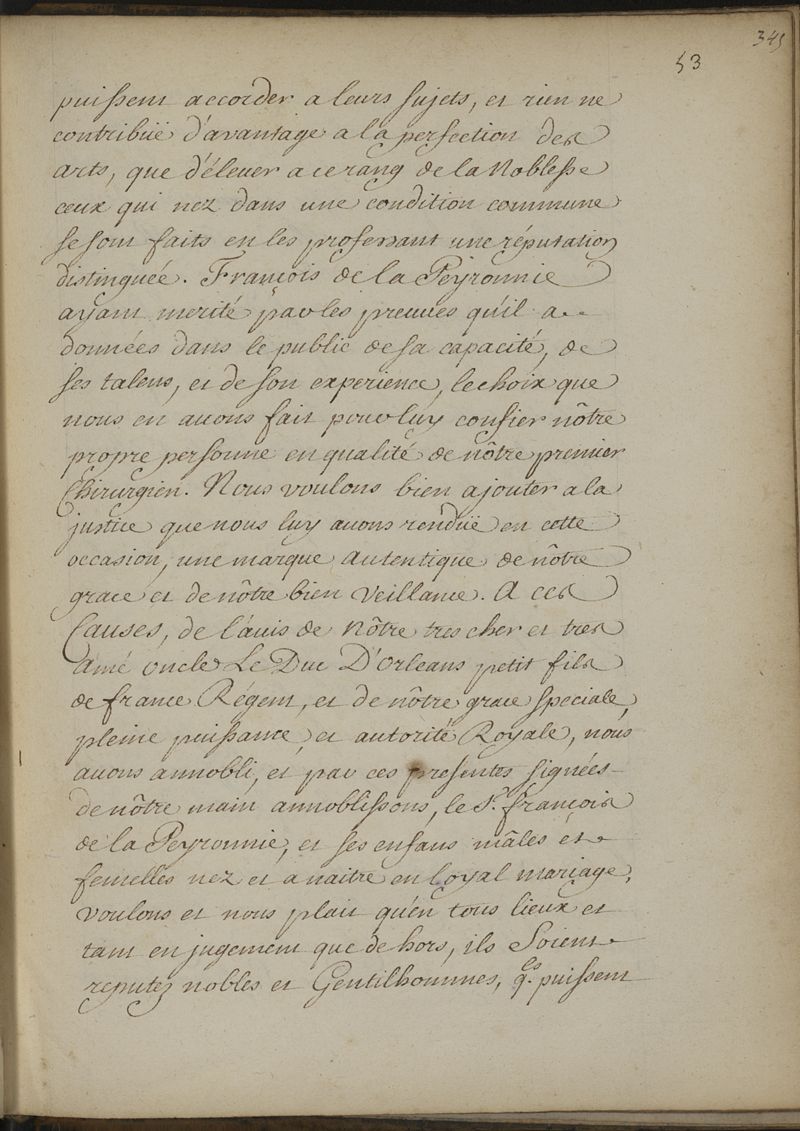 345
53
puissent accorder a leurs sujets, et rien ne
contribuë d'avantage a la perfection des
arts, que d'élever a ce rang de la Noblesse
ceux qui nez dans une condition commune
se sont faits en les professant une réputation
distinguée. François de la Peyronnie
ayant merité par les preuves qu'il a
données dans le public de sa capacité, de
ses talens, et de son experience, le choix que
nous en avons fait pour luy confier nôtre
propre personne en qualité de nôtre premier
Chirurgien. Nous voulons bien ajouter a la
justice que nous luy avons renduë en cette
occasion, une marque autentique de nôtre
grace et de nôtre bien veillance. A ces
Causes, de l'avis de Nôtre tres cher et tres
Amé oncle Le Duc D'Orleans petit fils
de france Régent, et de nôtre grace speciale,
pleine puissance, et autorité Royale, nous
avons annobli, et par ces presentes signées
de nôtre main annoblissons, le Sr. françois
de la Peyronnie, et ses enfans mâles et
femelles nez et a naitre en loyal mariage,
voulons et nous plait qu'en tous lieux et
tant en jugement que dehors, ils Soient
reputez nobles et Gentilhommes, q.ls puissent